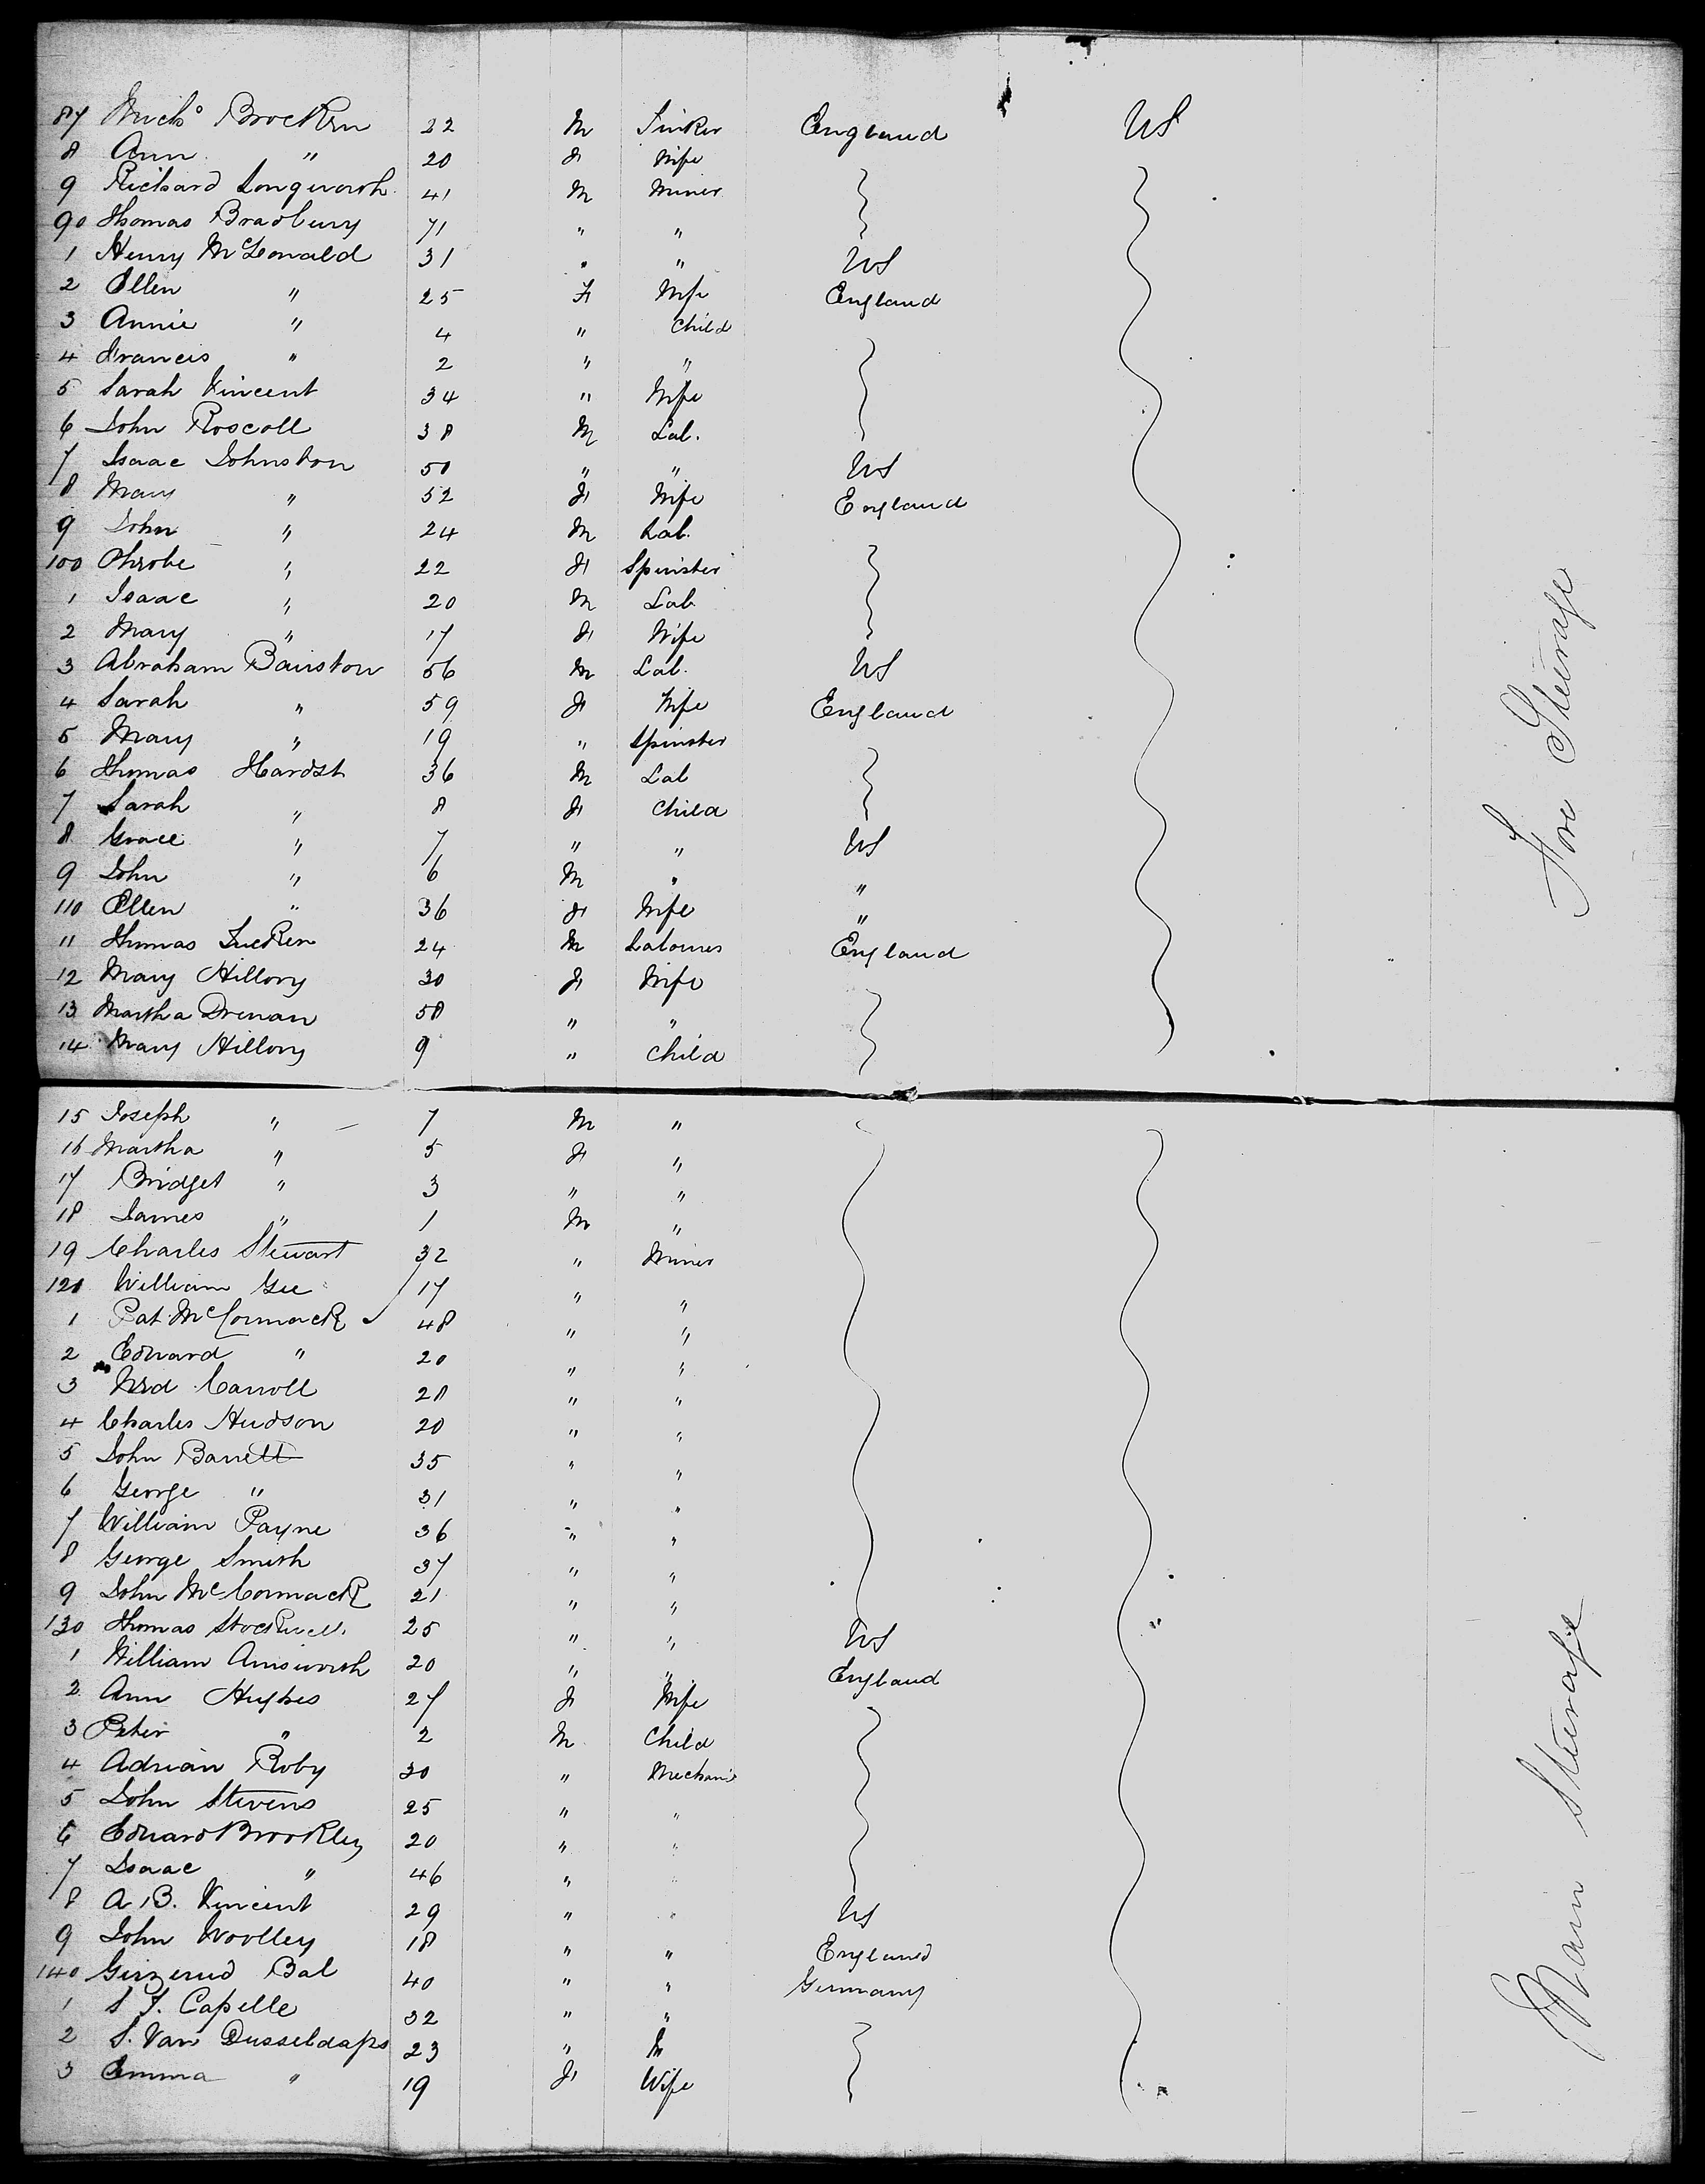 87 Mich° Brocken 22 M Tinker England US
8 Ann " 20 F Wife
9 Richard Longworth 41 M Miner
90 Thomas Bradbury 71 " "
1 Henry McDonald 31 " " US
2 Ellen " 25 F Wife England
3 Annie " 4 " Child
4 Francis " 2 " "
5 Sarah Vincent 34 " Wife
6 John Roscoll 38 M Lab.
7 Isaac Johnston 50 " " US
8 Mary " 52 F Wife England
9 John " 24 M Lab.
100 Phobe " 22 F Spinster
1 Isaac " 20 M Lab
2 Mary " 17 F Wife
3 Abraham Bairston 56 M Lab. US
4 Sarah " 59 F Wife England
5 Mary " 19 " Spinster
6 Thomas 36 M Lab
7 Sarah " 8 F Child
8 Grace " 7 " " US
9 John " 6 M " "
110 Ellen " 36 F Wife "
11 Thomas Tucker 24 M Labourer England
12 Mary Hillory 30 F Wife
13 Martha Drenan 58 " "
14 Mary Hillory 9 " Child
Fore Steerage
15 Joseph " 7 M "
16 Martha " 5 F "
17 Bridget " 3 " "
18 James " 1 M "
19 Charles Stewart 32 " Miner
120 William Gee 17 " "
1 Pat McCormack 48 " "
2 Edward " 20 " "
3 Carroll 28 " "
4 Charles Hudson 20 " "
5 John Barrett 35 " "
6 George " 31 " "
7 William Payne 36 " "
8 George Smith 37 " "
9 John McCormack 21 " "
130 Thomas Stockwell 25 " " US
1 William Ainsworth 20 " " England
2 Ann Hughes 27 F Wife
3 Peter " 2 M Child
4 Adrian Roby 30 " Mechanic
5 John Stevens 25 " "
6 Edward Brookley 20 " "
7 Isaac " 46 " "
8 A. B. Vincent 29 " " US
9 John Woolley 18 " " England
140 Bal 40 " " Germany
1 S J. Capelle 32 " "
2 S. Van Dusseldaps 23 "
3 Emma " 19 F Wife
Main Steerage